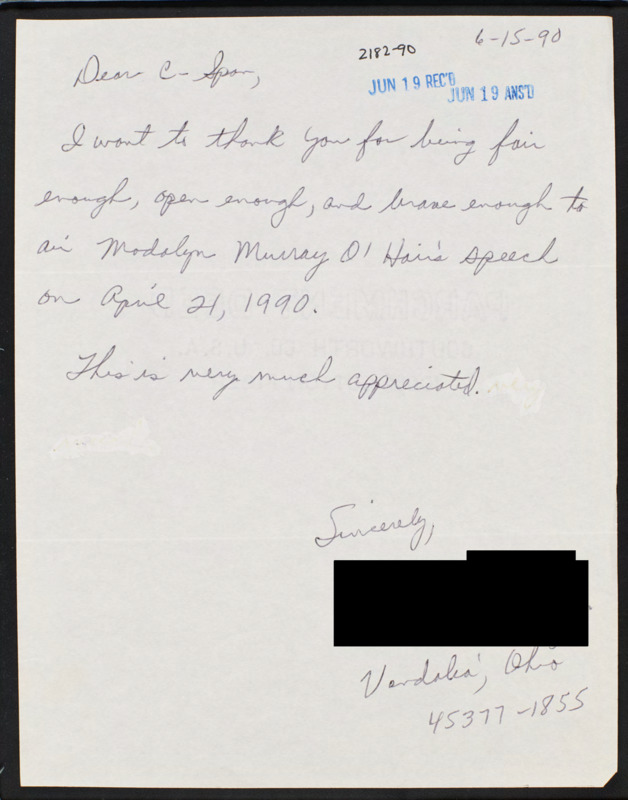 6-15-90
2182-90
Dear C-Span,
JUN 19 REC'D
JUN 19 ANS'D
I want to thank you for being fair
enough, open enough, and brave enough to
air Madalyn Murray O'Hair's speech
on April 21, 1990.
This is very much appreciated.
Sincerely,
Vandalia, Ohio
45377-1855